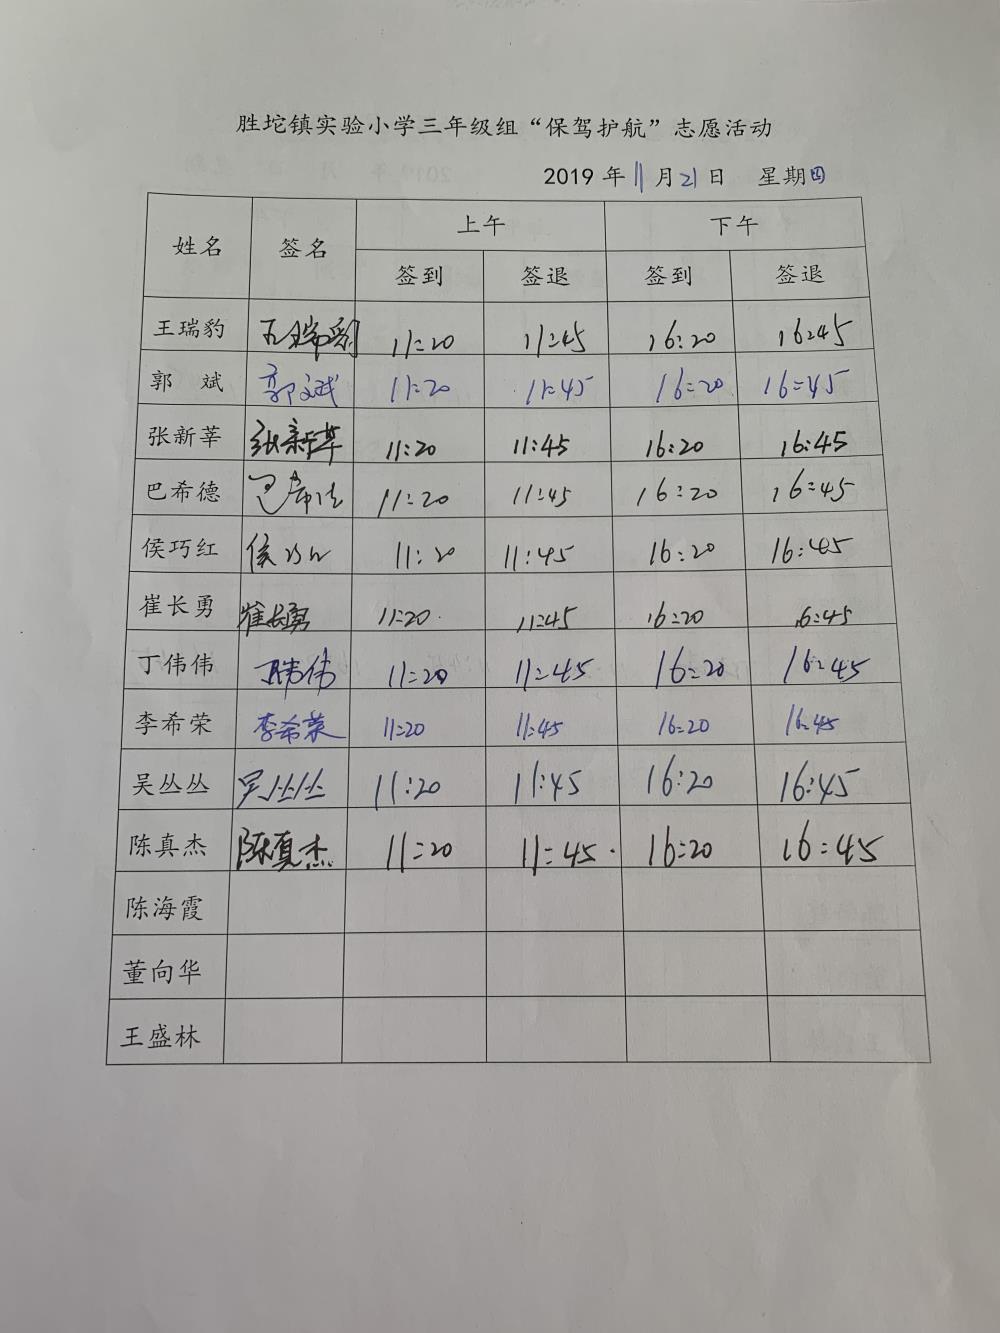 胜坨镇实验小学三年级组“保驾护航”志愿活动
2019 年 11 月 21 日 星期四
姓名 签名 上午 下午
签到 签退 签到 签退
王瑞豹 王瑞豹 11:20 11:45 16:20 16:45
郭 斌 郭斌 11:20 11:45 16:20 16:45
张新莘 张新莘 11:20 11:45 16:20 16:45
巴希德 巴希德 11:20 11:45 16:20 16:45
侯巧红 侯巧红 11:20 11:45 16:20 16:45
崔长勇 崔长勇 11:20 11:45 16:20 16:45
丁伟伟 丁伟伟 11:20 11:45 16:20 16:45
李希荣 李希荣 11:20 11:45 16:20 16:45
吴丛丛 吴丛丛 11:20 11:45 16:20 16:45
陈真杰 陈真杰 11:20 11:45 16:20 16:45
陈海霞
董向华
王盛林